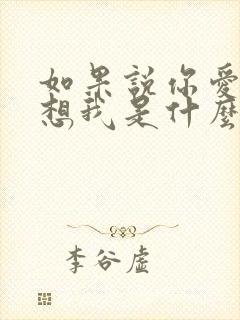 如果說你愛
想我是什麼
李谷虛